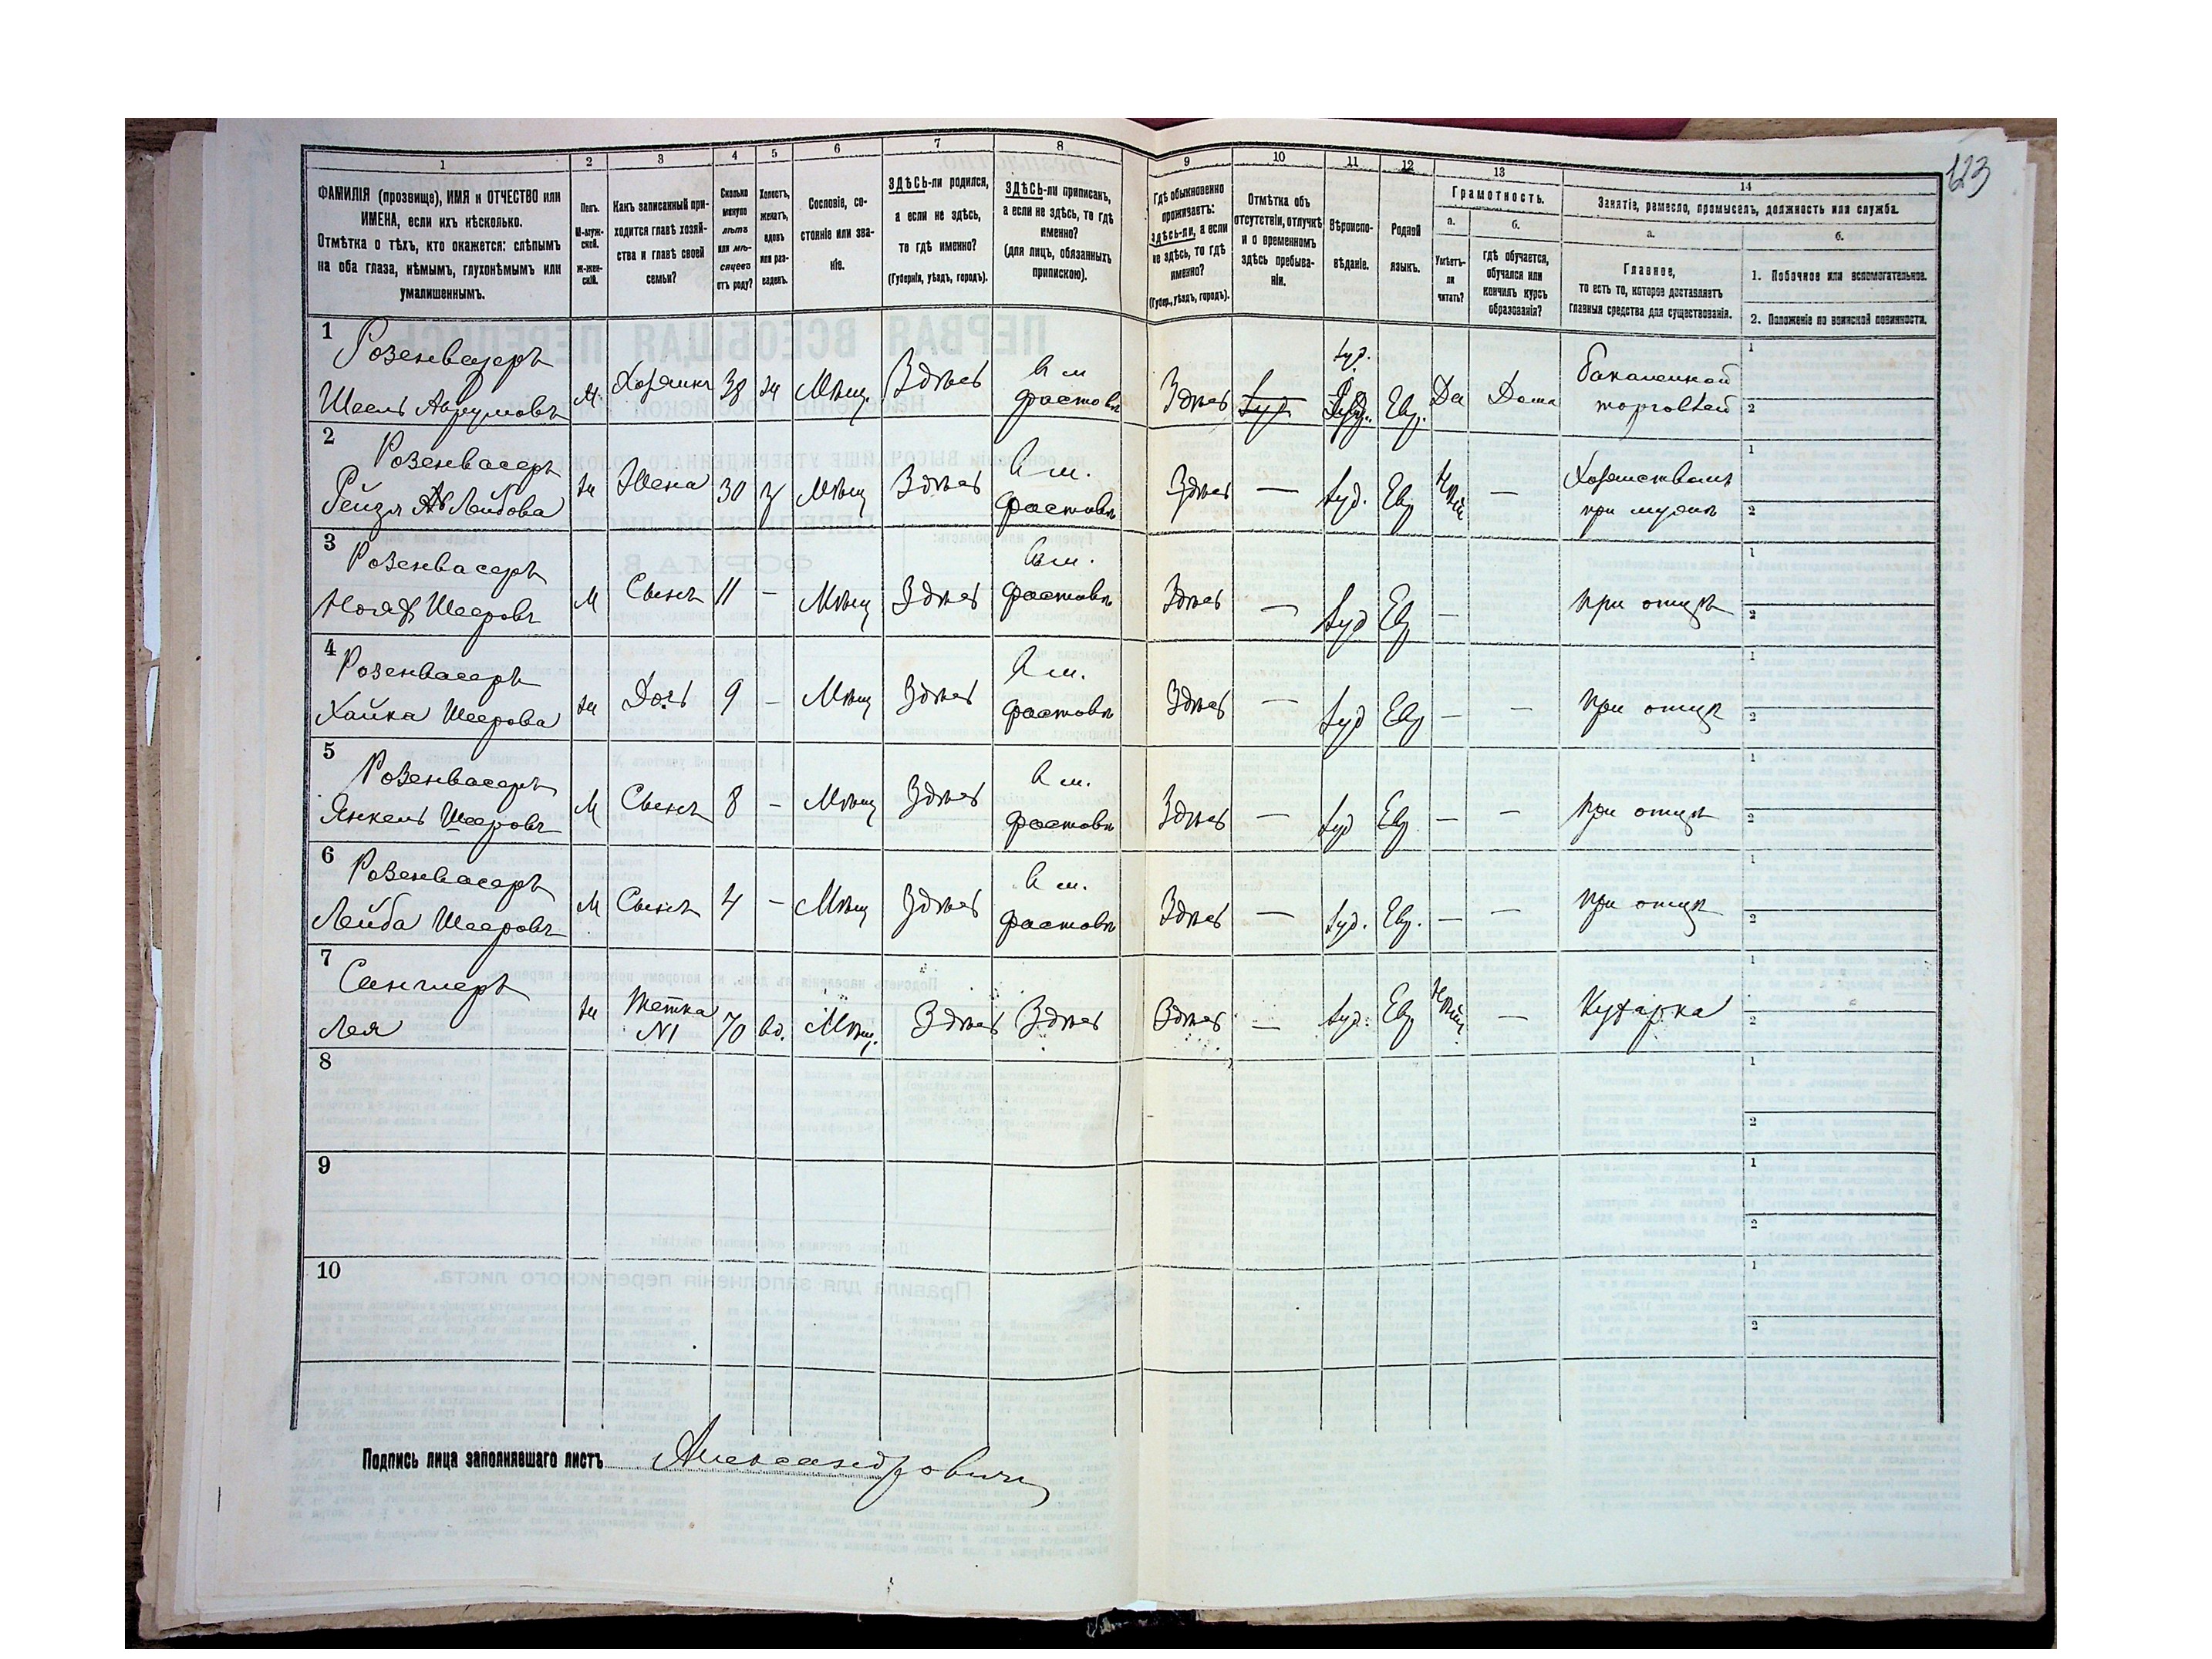 123
1 2 3 4 5 6 7 8 9 10 11 12 13 14
ФАМИЛІЯ (прозвище), ИМЯ и ОТЧЕСТВО или
ИМЕНА, если ихъ нѣсколько.
Отмѣтка о тѣхъ, кто окажется: слѣпымъ
на оба глаза, нѣмымъ, глухонѣмымъ или
умалишеннымъ.
Полъ.
М-муж-
ской.
ж-жен-
скій.
Какъ записанный при-
ходится главѣ хозяй-
ства и главѣ своей
семьи?
Сколько
минуло
лѣтъ
или мѣ-
сяцевъ
отъ роду?
Холостъ,
женатъ,
вдовъ
или раз-
веденъ.
Сословіе, со-
стояніе или зва-
ніе.
ЗДѢСЬ-ли родился,
а если не здѣсь,
то гдѣ именно?
(Губернія, уѣздъ, городъ).
ЗДѢСЬ-ли приписанъ,
а если не здѣсь, то гдѣ
именно?
(для лицъ, обязанныхъ
припискою).
Гдѣ обыкновенно
проживаетъ:
здѣсь-ли, а если
не здѣсь, то гдѣ
именно?
(Губер., уѣздъ, городъ).
Отмѣтка объ
отсутствіи, отлучкѣ
и о временномъ
здѣсь пребыва-
ніи.
Вѣроиспо-
вѣданіе.
Родной
языкъ.
Грамотность.
а.
Умѣетъ-
ли
читать?
б.
гдѣ обучается,
обучался или
кончилъ курсъ
образованія?
Занятіе, ремесло, промыселъ, должность или служба.
а.
Главное,
то есть то, которое доставляетъ
главныя средства для существованія.
б.
1. Побочное или вспомогательное.
2. Положеніе по воинской повинности.
1 Розенвасеръ
М. Хозяинъ 38 ж Мѣщ. Здѣсь В м Фастовѣ Здѣсь Іуд. Евр. Да Дома бакалейной торговлей
2 Розенвасеръ
Рейзя Лейбова ж Жена 30 з Мѣщ Здѣсь В м. Фастовѣ Здѣсь — Іуд. Евр — Хозяйствомъ при мужѣ
3 Розенвасеръ
М Сынъ 11 — Мѣщ Здѣсь В м. Фастовѣ Здѣсь — Іуд Евр — — при отцѣ
4 Розенвасеръ
Хайка Шеерова ж Дочь 9 — Мѣщ Здѣсь В м. Фастовѣ Здѣсь — Іуд Евр — — при отцѣ
5 Розенвасеръ
Янкель Шееровъ М Сынъ 8 — Мѣщ Здѣсь В м. Фастовѣ Здѣсь — Іуд Евр. — — при отцѣ
6 Розенвасеръ
Лейба Шееровъ М Сынъ 4 — Мѣщ Здѣсь В м. Фастовѣ Здѣсь — Іуд. Евр. — — при отцѣ
7
Лея ж Тетка №1 70 вд. Мѣщ. Здѣсь Здѣсь Здѣсь — Іуд. Евр — Кухарка
8
9
10
Подпись лица заполнявшаго листъ Александровичъ